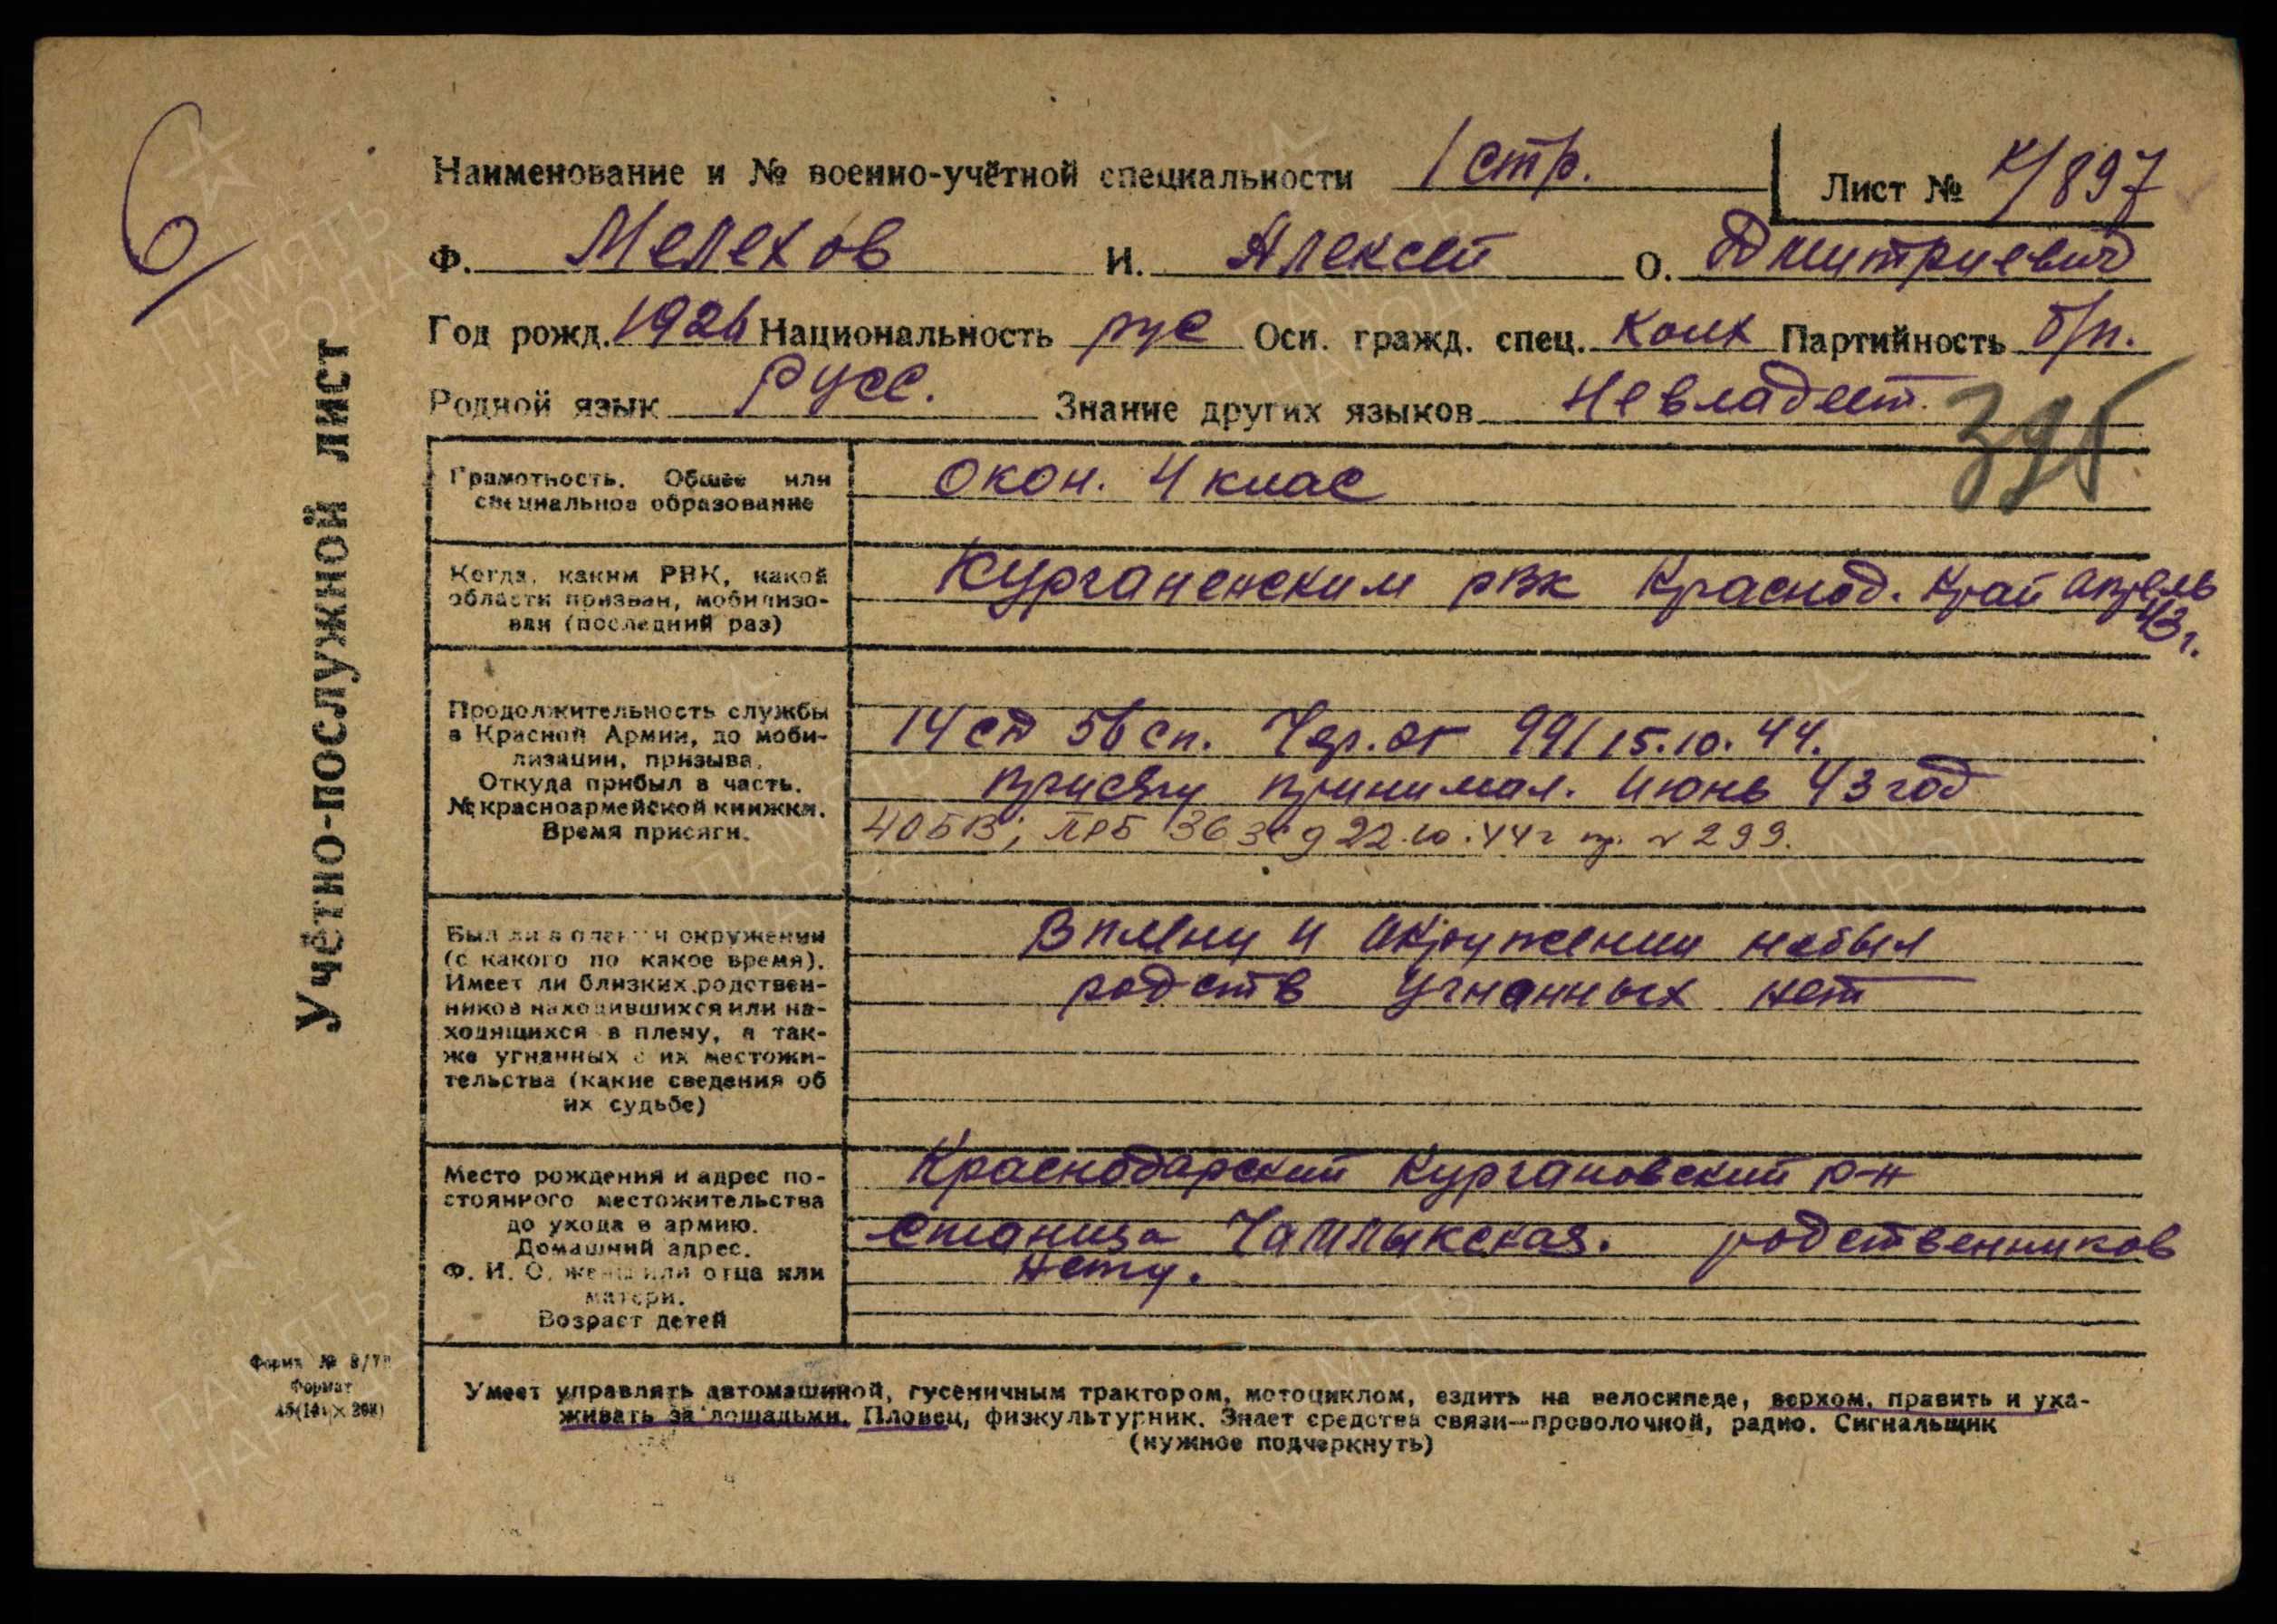 6
Наименование и № военно-учётной специальности 1 стр.
Лист № К/897
Ф. Мелехов И. Алексей О. Дмитриевич
Год рожд. 1926 Национальность рус Осн. гражд. спец. Колх Партийность б/п.
Родной язык Русс. Знание других языков Невладеет.
395
Учётно-послужной лист
Грамотность. Общее или
специальное образование
Окон. 4 клас
Когда, каким РВК, какой
области призван, мобилизо-
ван (последний раз)
Курганенским рвк Краснод. Край апрель
43 г.
Продолжительность службы
в Красной Армии, до моби-
лизации, призыва.
Откуда прибыл в часть.
№ красноармейской книжки.
Время присяги.
14 сд 56 сп. 15.10.44.
присягу принимал. Июнь 43 год
22.10.44 г пр. № 299.
Был ли в плену и окружении
(с какого по какое время).
Имеет ли близких родствен-
ников находившихся или на-
ходящихся в плену, а так-
же угнанных с их местожи-
тельства (какие сведения об
их судьбе)
В плену и акружении небыл
родств угнанных нет
Место рождения и адрес по-
стоянного местожительства
до ухода в армию.
Домашний адрес.
Ф. И. О. жены или отца или
матери.
Возраст детей
Краснодарский Кургановский р-н
станица Чамлыкская. родственников
нету.
Форма № 8/
Формат
Умеет управлять автомашиной, гусеничным трактором, мотоциклом, ездить на велосипеде, верхом, править и уха-
живать за лошадьми. Пловец, физкультурник. Знает средства связи—проволочной, радио. Сигнальщик
(нужное подчеркнуть)
ПАМЯТЬ
НАРОДА